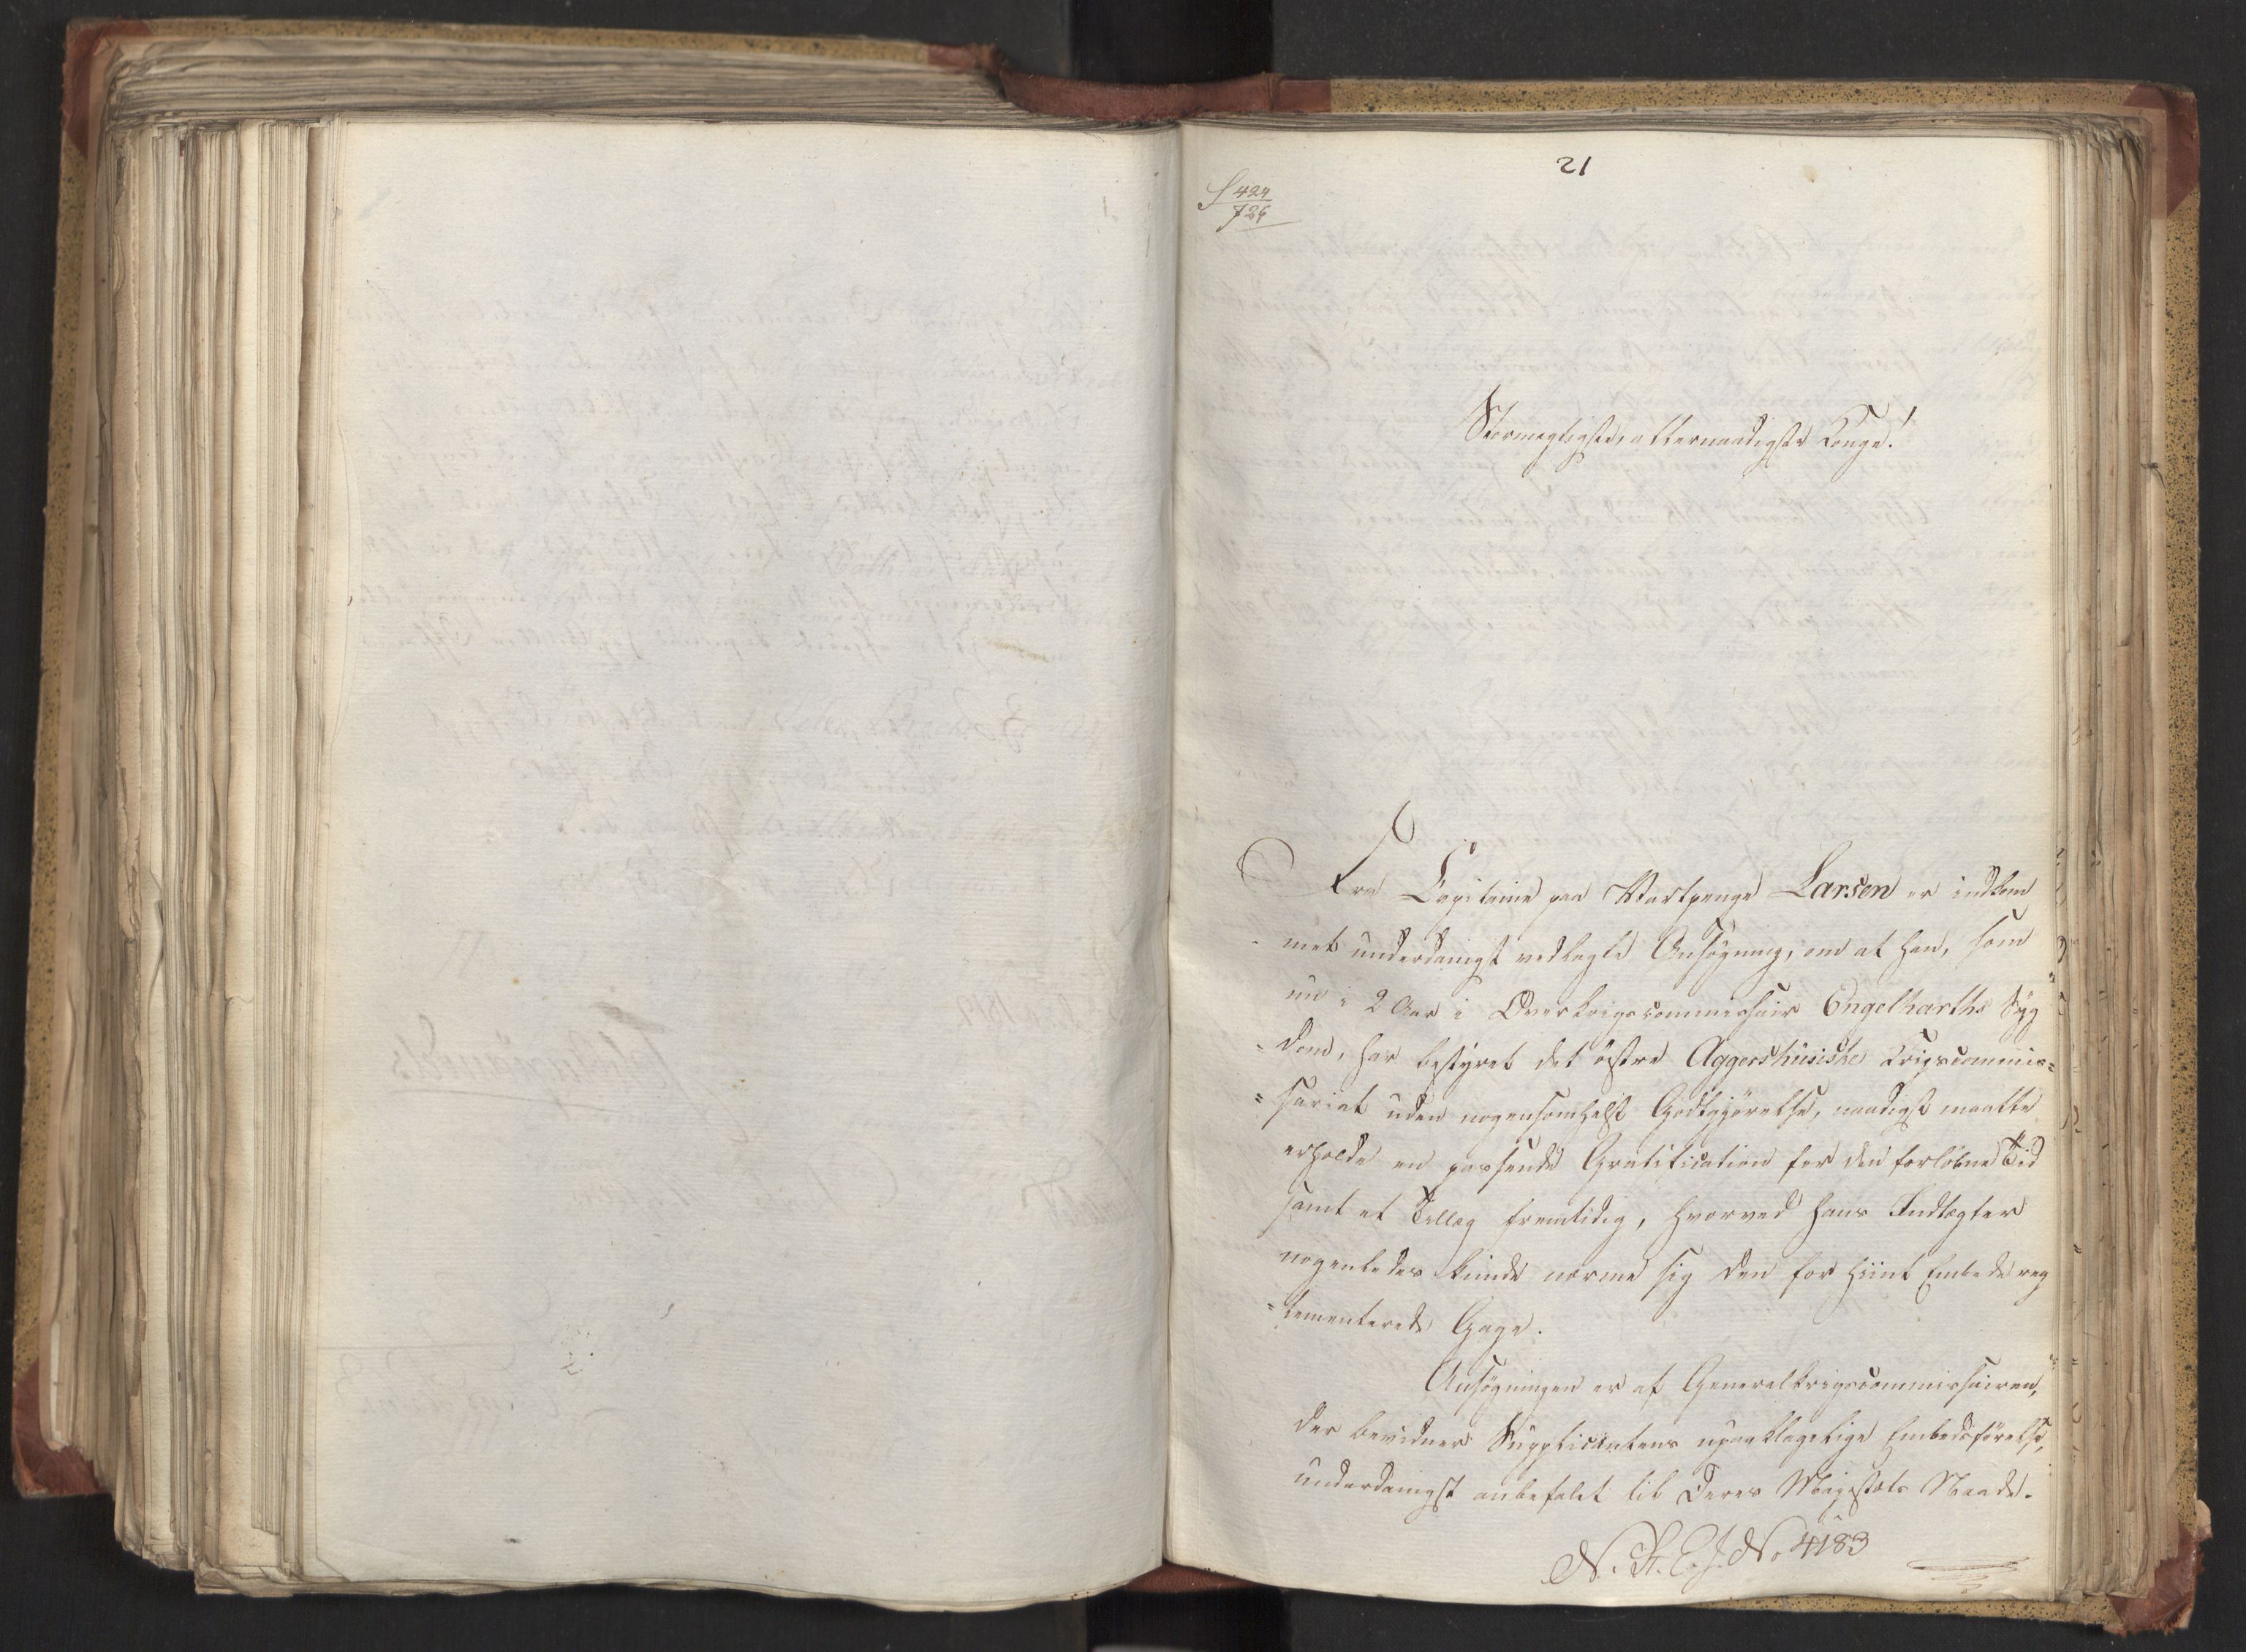 21
S 424
726
Stormægtigste, allernaadigste Konge!
Fra Capitaine paa Vartpenge Larsen er indkom
met underdanigst vedlagte Ansøgning, om at han, som
nu i 2 Aar i Overkrigscommissair Engelharths Syg
=dom, har bestyret det östre Aggershuusiske Krigscommis=
=sariat uden nogensomhelst Godtgjörelse, naadigst maatte
erholde en passende Gratification for den forlöbne Tid
samt et Tillæg fremtidig, hvorved hans Indtægter
nogenledes kunde nærme sig den for hiint Embede reg
=lementerede Gage.
Ansøgningen er af Generalkrigscommissairen,
der bevidner Supplicantens upaaklagelige Embedsförelse,
underdanigst anbefalet til Deres Majestæts Naade.
N. R. C. J. No 4183